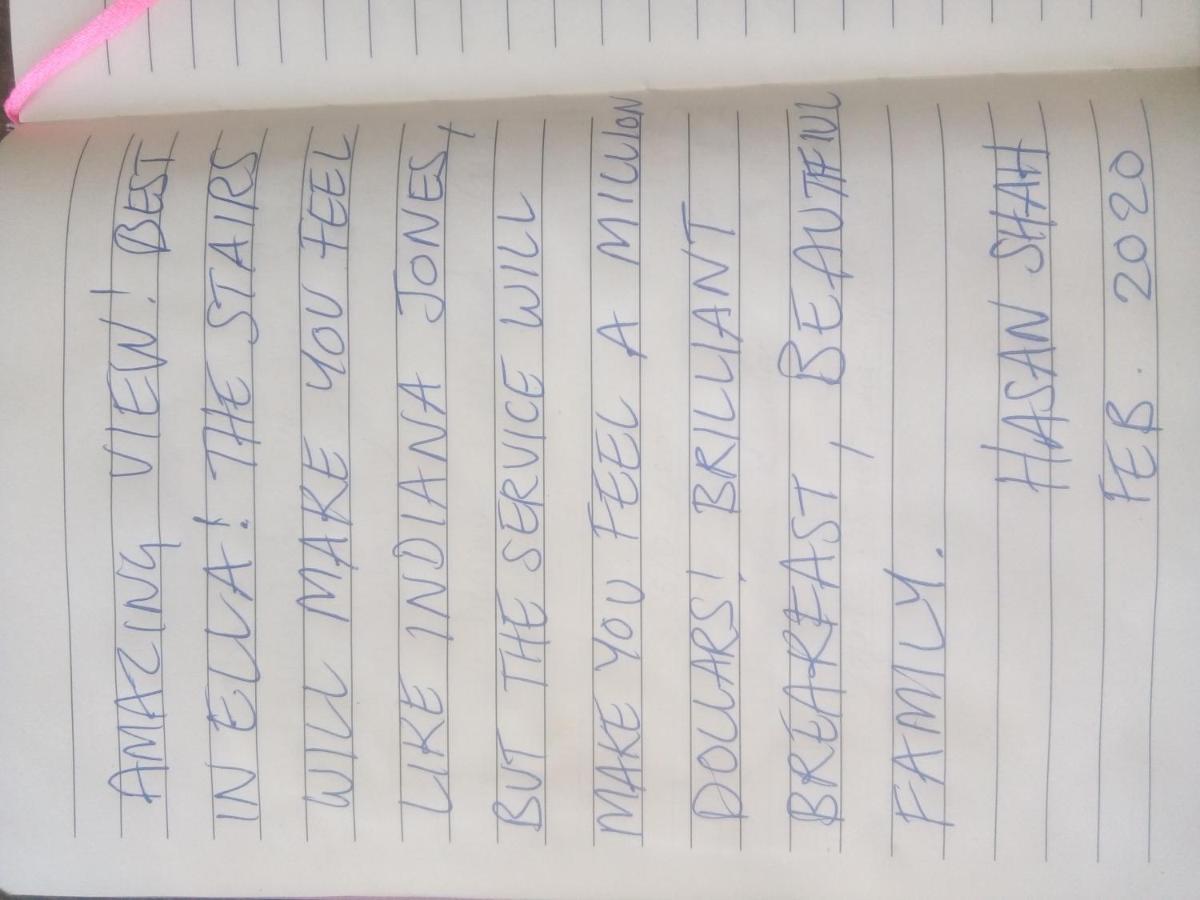 AMAZING VIEW! BEST
IN ELLA! THE STAIRS
WILL MAKE YOU FEEL
LIKE INDIANA JONES,
BUT THE SERVICE WILL
MAKE YOU FEEL A MILLION
DOLLARS! BRILLIANT
BREAKFAST, BEAUTIFUL
FAMILY.
HASAN SHAH
FEB. 2020